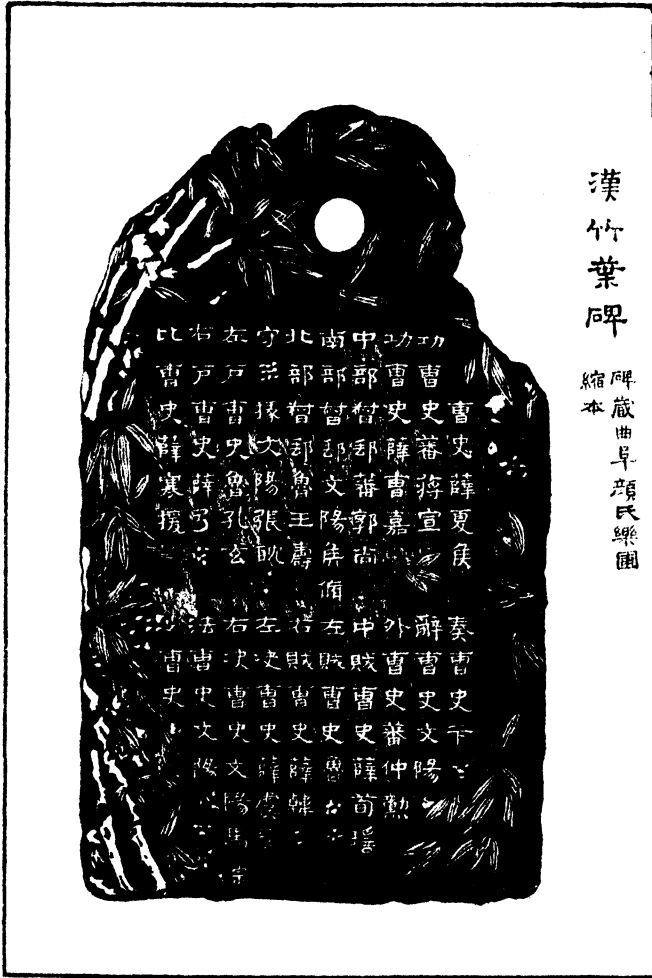 漢竹葉碑
碑藏曲阜顏氏樂圃
縮本
曹史薛夏侯
功曹史蕃蔣宣
功曹史薛曹嘉
中部督郵蕃郭尚
南部督郵文陽侯脩
北部督郵魯王壽
守丞掾文陽張
左戶曹史魯孔玄
右戶曹史薛
比曹史薛寒援
奏曹史卞
辭曹史文陽
外曹史蕃仲勳
中賊曹史薛荀瑤
左賊曹史魯
右賊曹史薛韓
左決曹史薛虞
右決曹史文陽馬宗
法曹史文陽
曹史